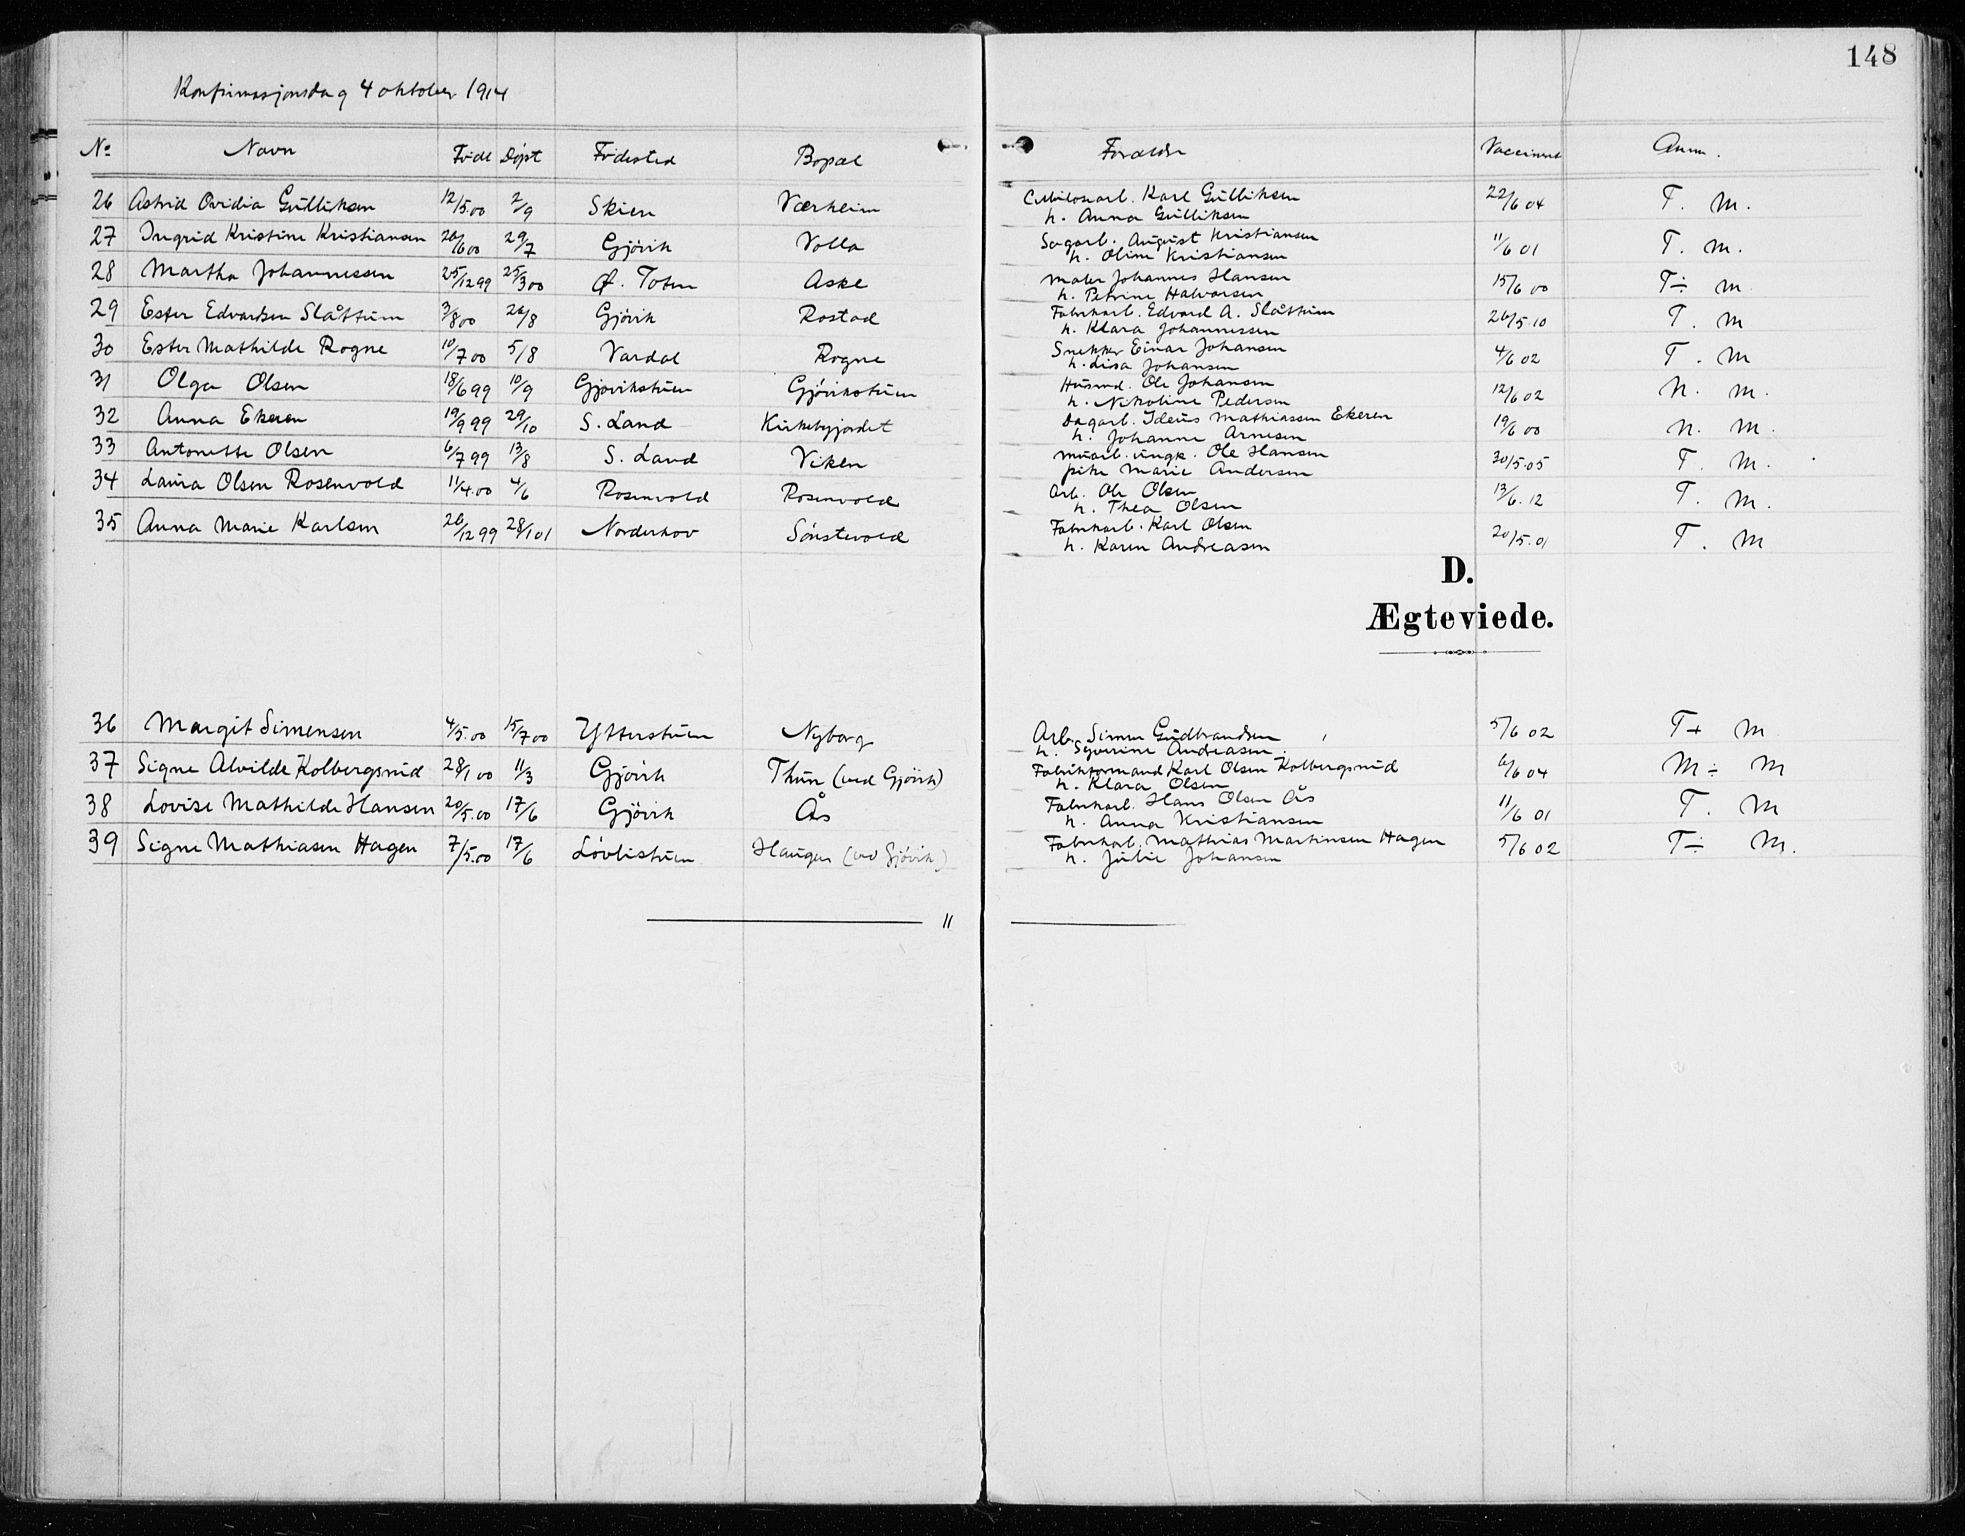 148
Konfirmasjonsdag 4 oktober 1914
No Navn Född Döpt Födested Bopæl Forældre Vaccinert Anm.
26 Astrid Ovidia Gulliksen 12/5.00 2/9 Skien Værheim Cellulosarb. Karl Gulliksen 22/6 04 T. M.
h. Anna Gulliksen
27 Ingrid Kristine Kristiansen 26/6 00 29/7 Gjövik Volla Sagarb. August Kristiansen 11/6 01 T. M.
h. Oline Kristiansen
28 Martha Johannessen 25/12 99 25/3 00 Ø. Toten Aske Maler Johannes Hansen 15/6 00 T÷ M
h. Petrine Halvorsen
29 Ester Edvardsen Slåttum 3/8 00 26/8 Gjövik Rostad Fabrikarb. Edvard A. Slåttum 26/5.10 T. M
h. Klara Johannessen
30 Ester Mathilde Rogne 10/7 00 5/8 Vardal Rogne Snekker Einar Johansen 4/6 02 T. M
h. Lisa Johansen
31 Olga Olsen 18/6 99 10/9 Gjövikstuen Gjövikstuen Husmd. Ole Johansen 12/6 02 N. M.
h. Nikoline Pedersen
32 Anna Ekeren 19/9 99 29/10 S. Land Kirkebyjordet Dagarb. Ideus Mathiassen Ekeren 19/6 00 N. M.
h. Johanne Arnesen
33 Antonette Olsen 6/7 99 13/8 S. Land Viken Murarb. ungk. Ole Hansen 30/5.05 T. M.
pike Marie Andersen
34 Laura Olsen Rosenvold 11/4.00 4/6 Rosenvold Rosenvold Arb. Ole Olsen 13/6.12 T. M.
h. Thea Olsen
35 Anna Marie Karlsen 26/12 99 28/1 01 Norderhov Sönstevold Fabrikarb. Karl Olsen 20/5.01 T. M
h. Karen Andreasen
D.
Ægteviede.
36 Margit Simensen 4/5.00 15/7 00 Ytterstuen Nyborg Arb. Simen Gudbrandsen 5/6 02 T+ M
h. Syverine Andreasen.
37 Signe Alvilde Kolbergsrud 28/1 00 11/3 Gjövik Thun (ved Gjövik) Fabrikformand Karl Olsen Kolbergsrud 6/6 04 M÷ M
h. Klara Olsen
38 Lovise Mathilde Hansen 20/5.00 17/6 Gjövik Ås Fabrikarb. Hans Olsen Ås 11/6 01 T. M
h. Anna Kristiansen
39 Signe Mathiasen Hagen 7/5.00 17/6 Lövlistuen Haugen (ved Gjövik) Fabrikarb. Mathias Martinsen Hagen 5/6 02 T÷ M.
h. Julie Johansen